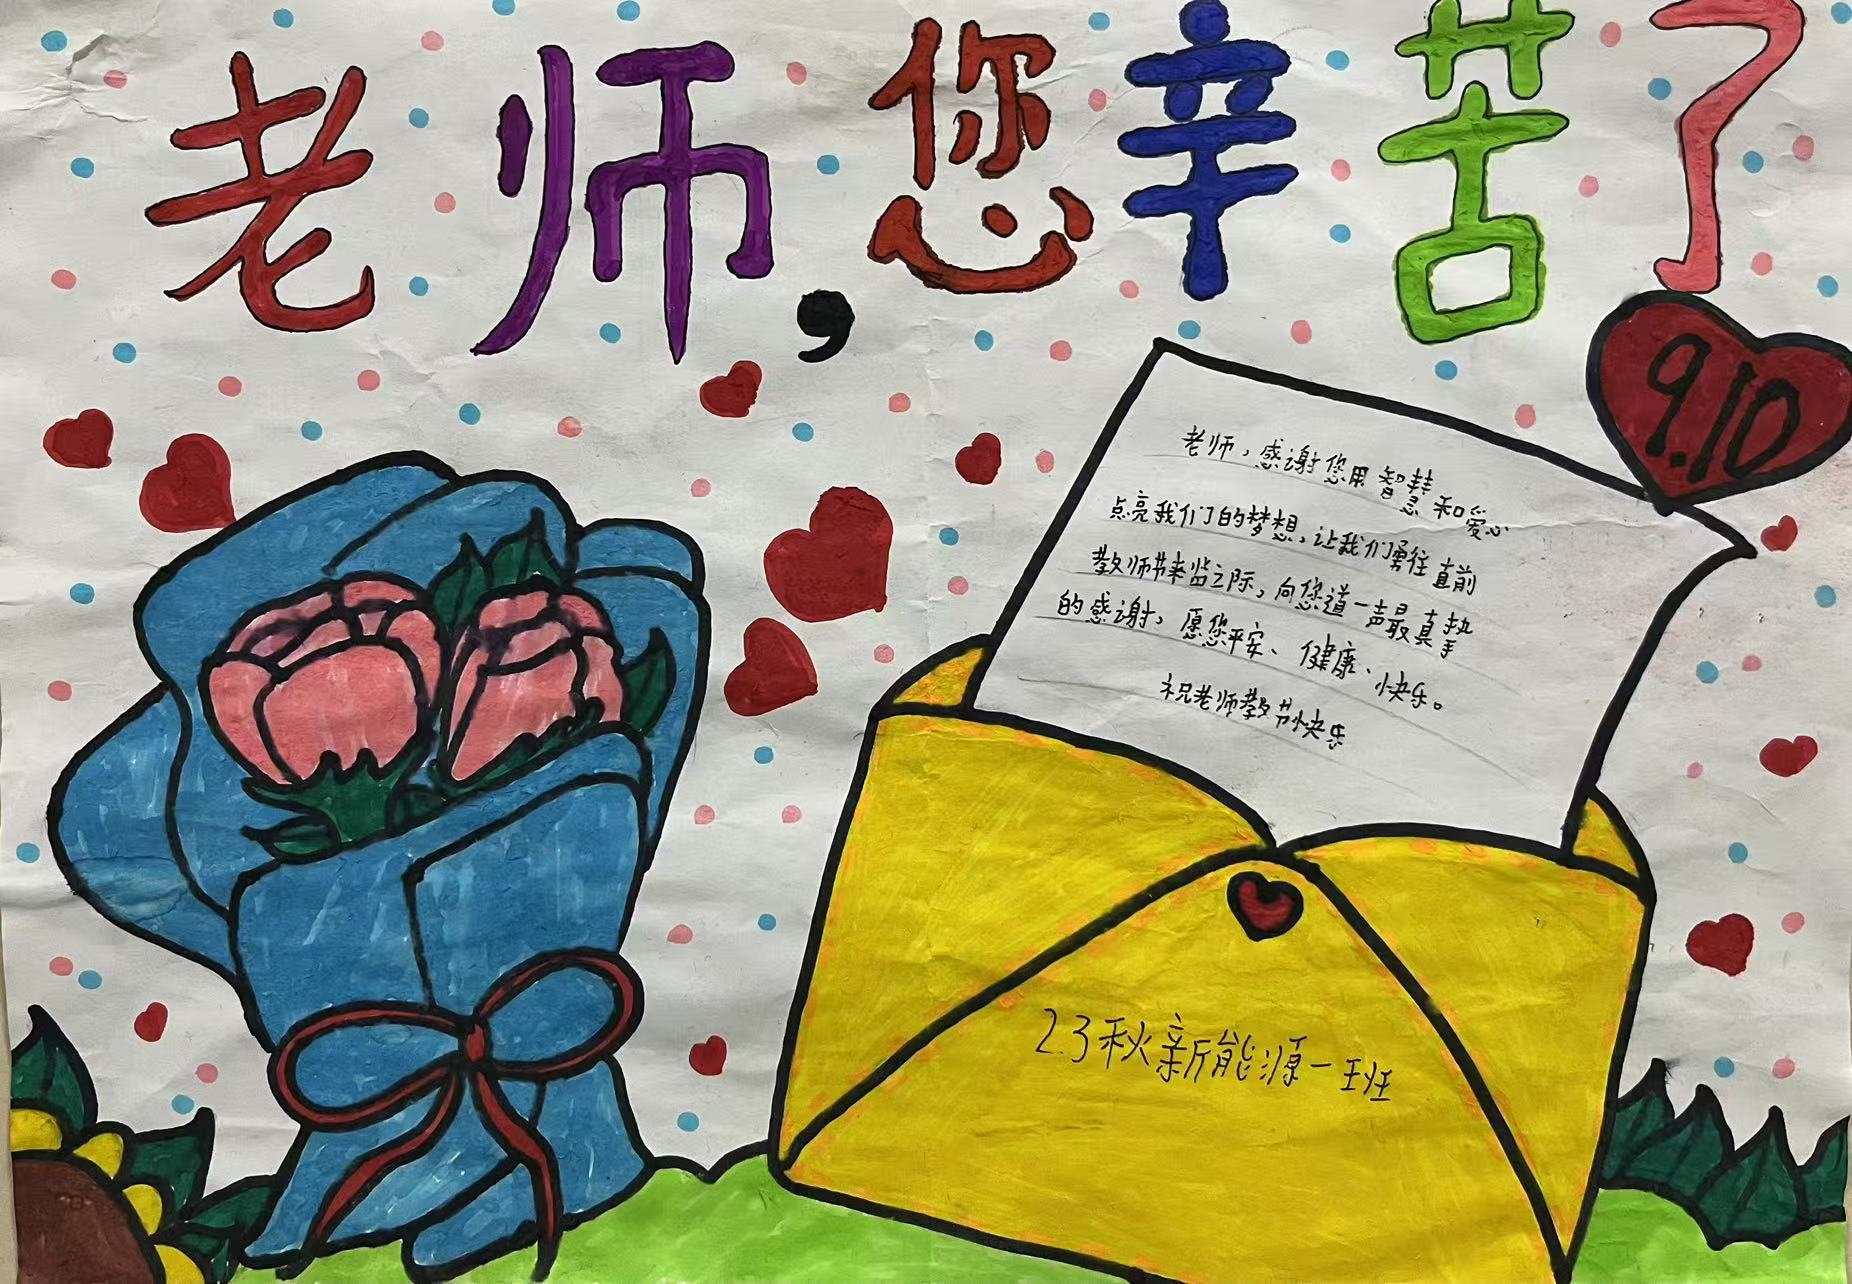 老师，您辛苦了
9.10
老师，感谢您用智慧和爱心
点亮我们的梦想，让我们勇往直前
教师节来监之际，向您道一声最真挚
的感谢，愿您平安、健康、快乐。
祝老师教节快乐
23秋新能源一班